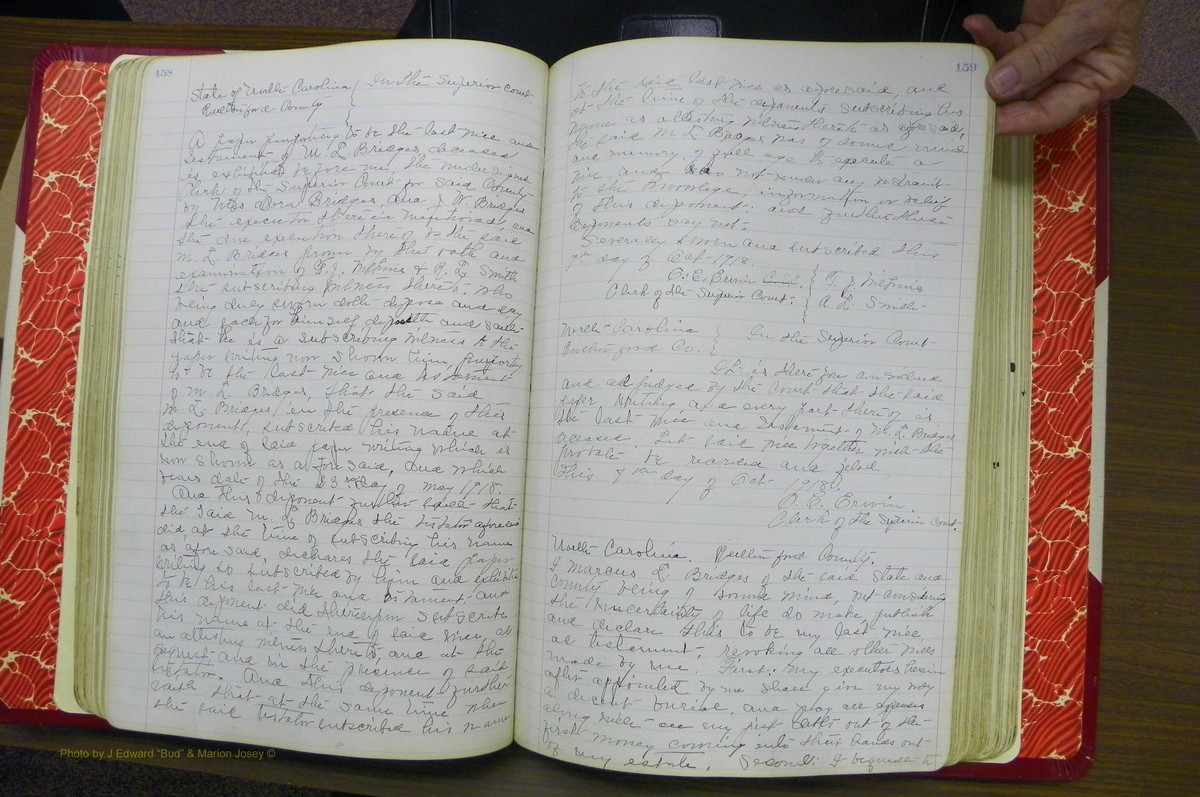 158
State of North Carolina
Rutherford County
In the Superior Court
A paper purporting to be the last will and
testament of M. L. Bridges deceased
is exhibited before me, the undersigned
Clerk of the Superior Court for said County
by Mrs Dora Bridges and J. W. Bridges
the executor therein mentioned, and
the due execution thereof by the said
M L Bridges proven by the oath and
examination of T. J. & A. L. Smith
the subscribing witness thereto, who
being duly sworn doth depose and say
and each for himself deposeth and saith
that he is a subscribing witness to the
paper writing now shown him purporting
to be the last will and testament
of M L Bridges, that the said
M. L. Bridges in the presence of this
deponent, subscribed his name at
the end of said paper writing which is
now shown as aforesaid, and which
bears date of the 3rd day of May 1918.
And this deponent further saith that
the said M. L Bridges the testator aforesaid
did, at the time of subscribing his name
as aforesaid, declares the said paper
writing so subscribed by him and exhibited
to be his last will and testament, and
this deponent did thereupon subscribe
his name at the end of said will, as
an attesting witness thereto, and at the
request and in the presence of said
testator. And this deponent further
saith that at the same time when
the said testator subscribed his name
159
to the said last will as aforesaid, and
at the time of the deponents subscribing his
name as attesting witness thereto as aforesaid,
the said M L Bridges was of sound mind
and memory, of full age to execute a
will, and was not under any restraint
to the knowledge, information or belief
of this deponent: and further these
deponents say not.
Severally sworn and subscribed this
7th day of Oct 1918.
O. C. Erwin CSC.
Clerk of the Superior Court.
T. J.
A. L. Smith
North Carolina
Rutherford Co.
In the Superior Court
It is therefore considered
and adjudged by the Court that the said
paper writing, and every part thereof is
the last will and testament of M. L. Bridges
deceased. Let said will together with the
probate be recorded and filed
This 7th day of Oct 1918.
O. C. Erwin.
Clerk of the Superior Court.
North Carolina. Rutherford County.
I Marcus L. Bridges of the said State and
County being of sound mind, but considering
the uncertainty of life do make, publish
and declare this to be my last will
and testament, revoking all other wills
made by me. First: My executors herein
after appointed by me shall give my body
a decent burial, and pay all expenses
along with all my just debts out of the
first money coming into their hands out
of my estate. Second: I bequeath to
Photo by J Edward "Bud" & Marion Josey ©